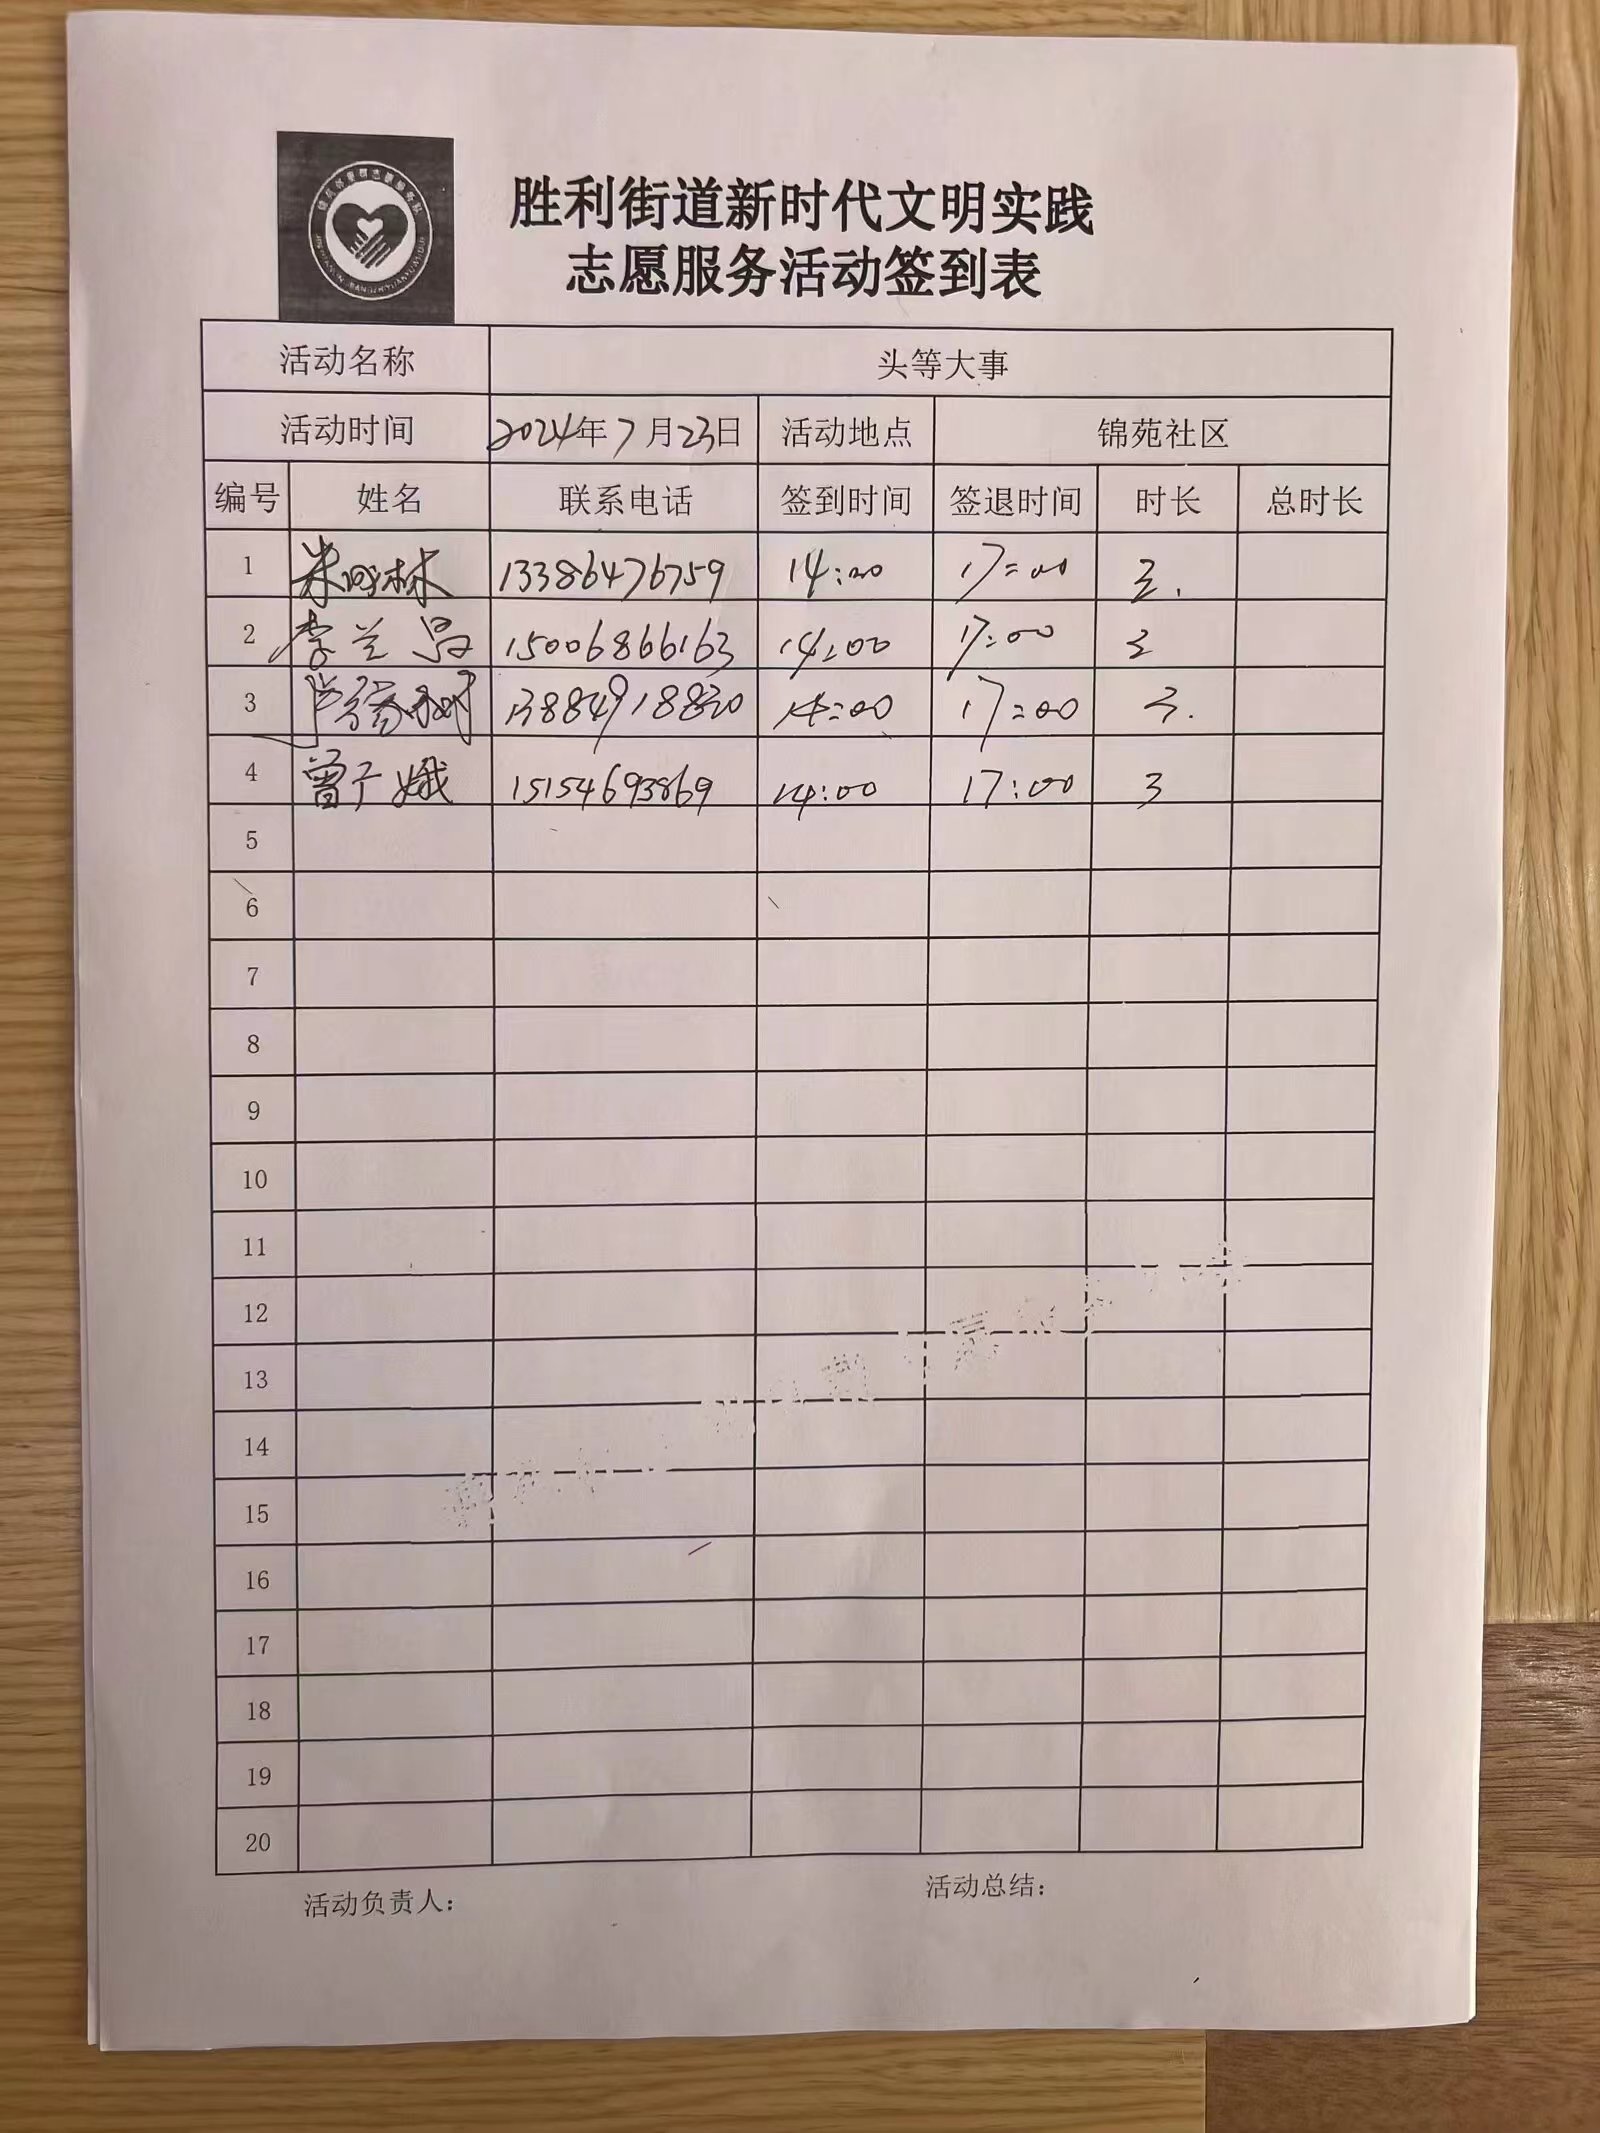 胜利街道新时代文明实践
志愿服务活动签到表
活动名称 头等大事
活动时间 2024年7月23日 活动地点 锦苑社区
编号 姓名 联系电话 签到时间 签退时间 时长 总时长
1 13386476759 14:00 17:00 3.
2 李兰 15006866163 14:00 17:00 3
3 13884918830 14:00 17:00 3.
4 曾广娥 15154693869 14:00 17:00 3
5
6
7
8
9
10
11
12
13
14
15
16
17
18
19
20
活动负责人： 活动总结：